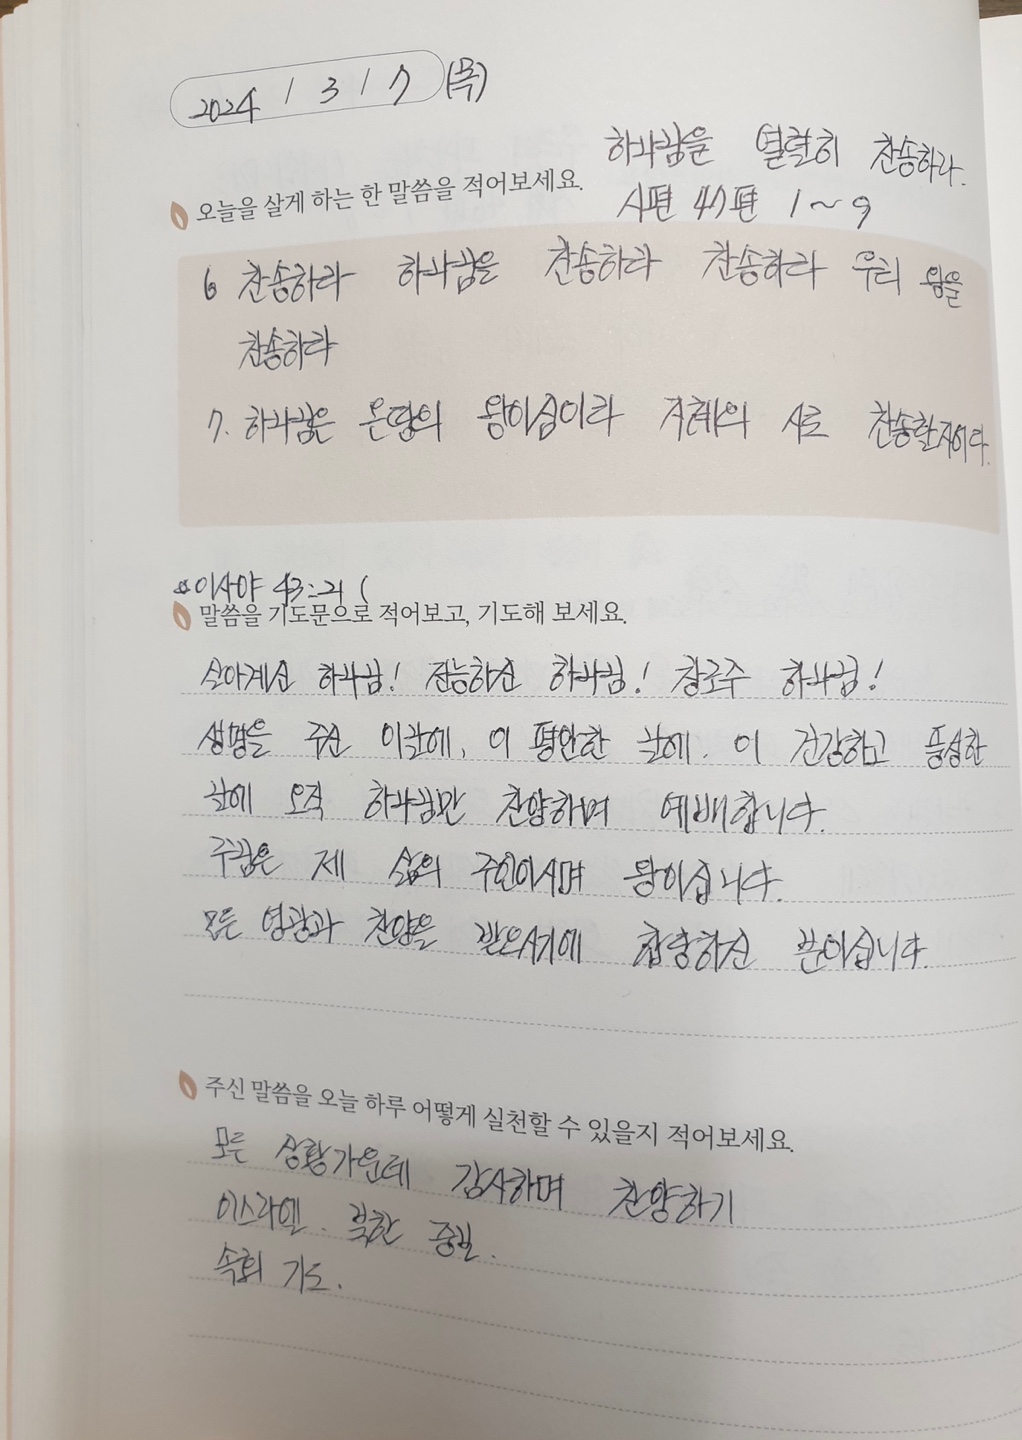 2024 / 3 / 7 (목)
하나님을 열렬히 찬송하라.
오늘을 살게 하는 한 말씀을 적어보세요.
시편 47편 1~9
6 찬송하라 하나님을 찬송하라 찬송하라 우리 왕을
찬송하라
7. 하나님은 온땅의 왕이심이라 지혜의 시로 찬송할지어다.
이사야 43:21 (
말씀을 기도문으로 적어보고, 기도해 보세요.
살아계신 하나님! 전능하신 하나님! 창조주 하나님!
생명을 주신 이날에, 이 평안한 날에, 이 건강하고 풍성한
날에 오직 하나님만 찬양하며 예배합니다.
주님은 제 삶의 주인이시며 왕이십니다.
모든 영광과 찬양을 받으시기에 합당하신 분이십니다.
주신 말씀을 오늘 하루 어떻게 실천할 수 있을지 적어보세요.
모든 상황가운데 감사하며 찬양하기
이스라엘. 북한
속회 기도.